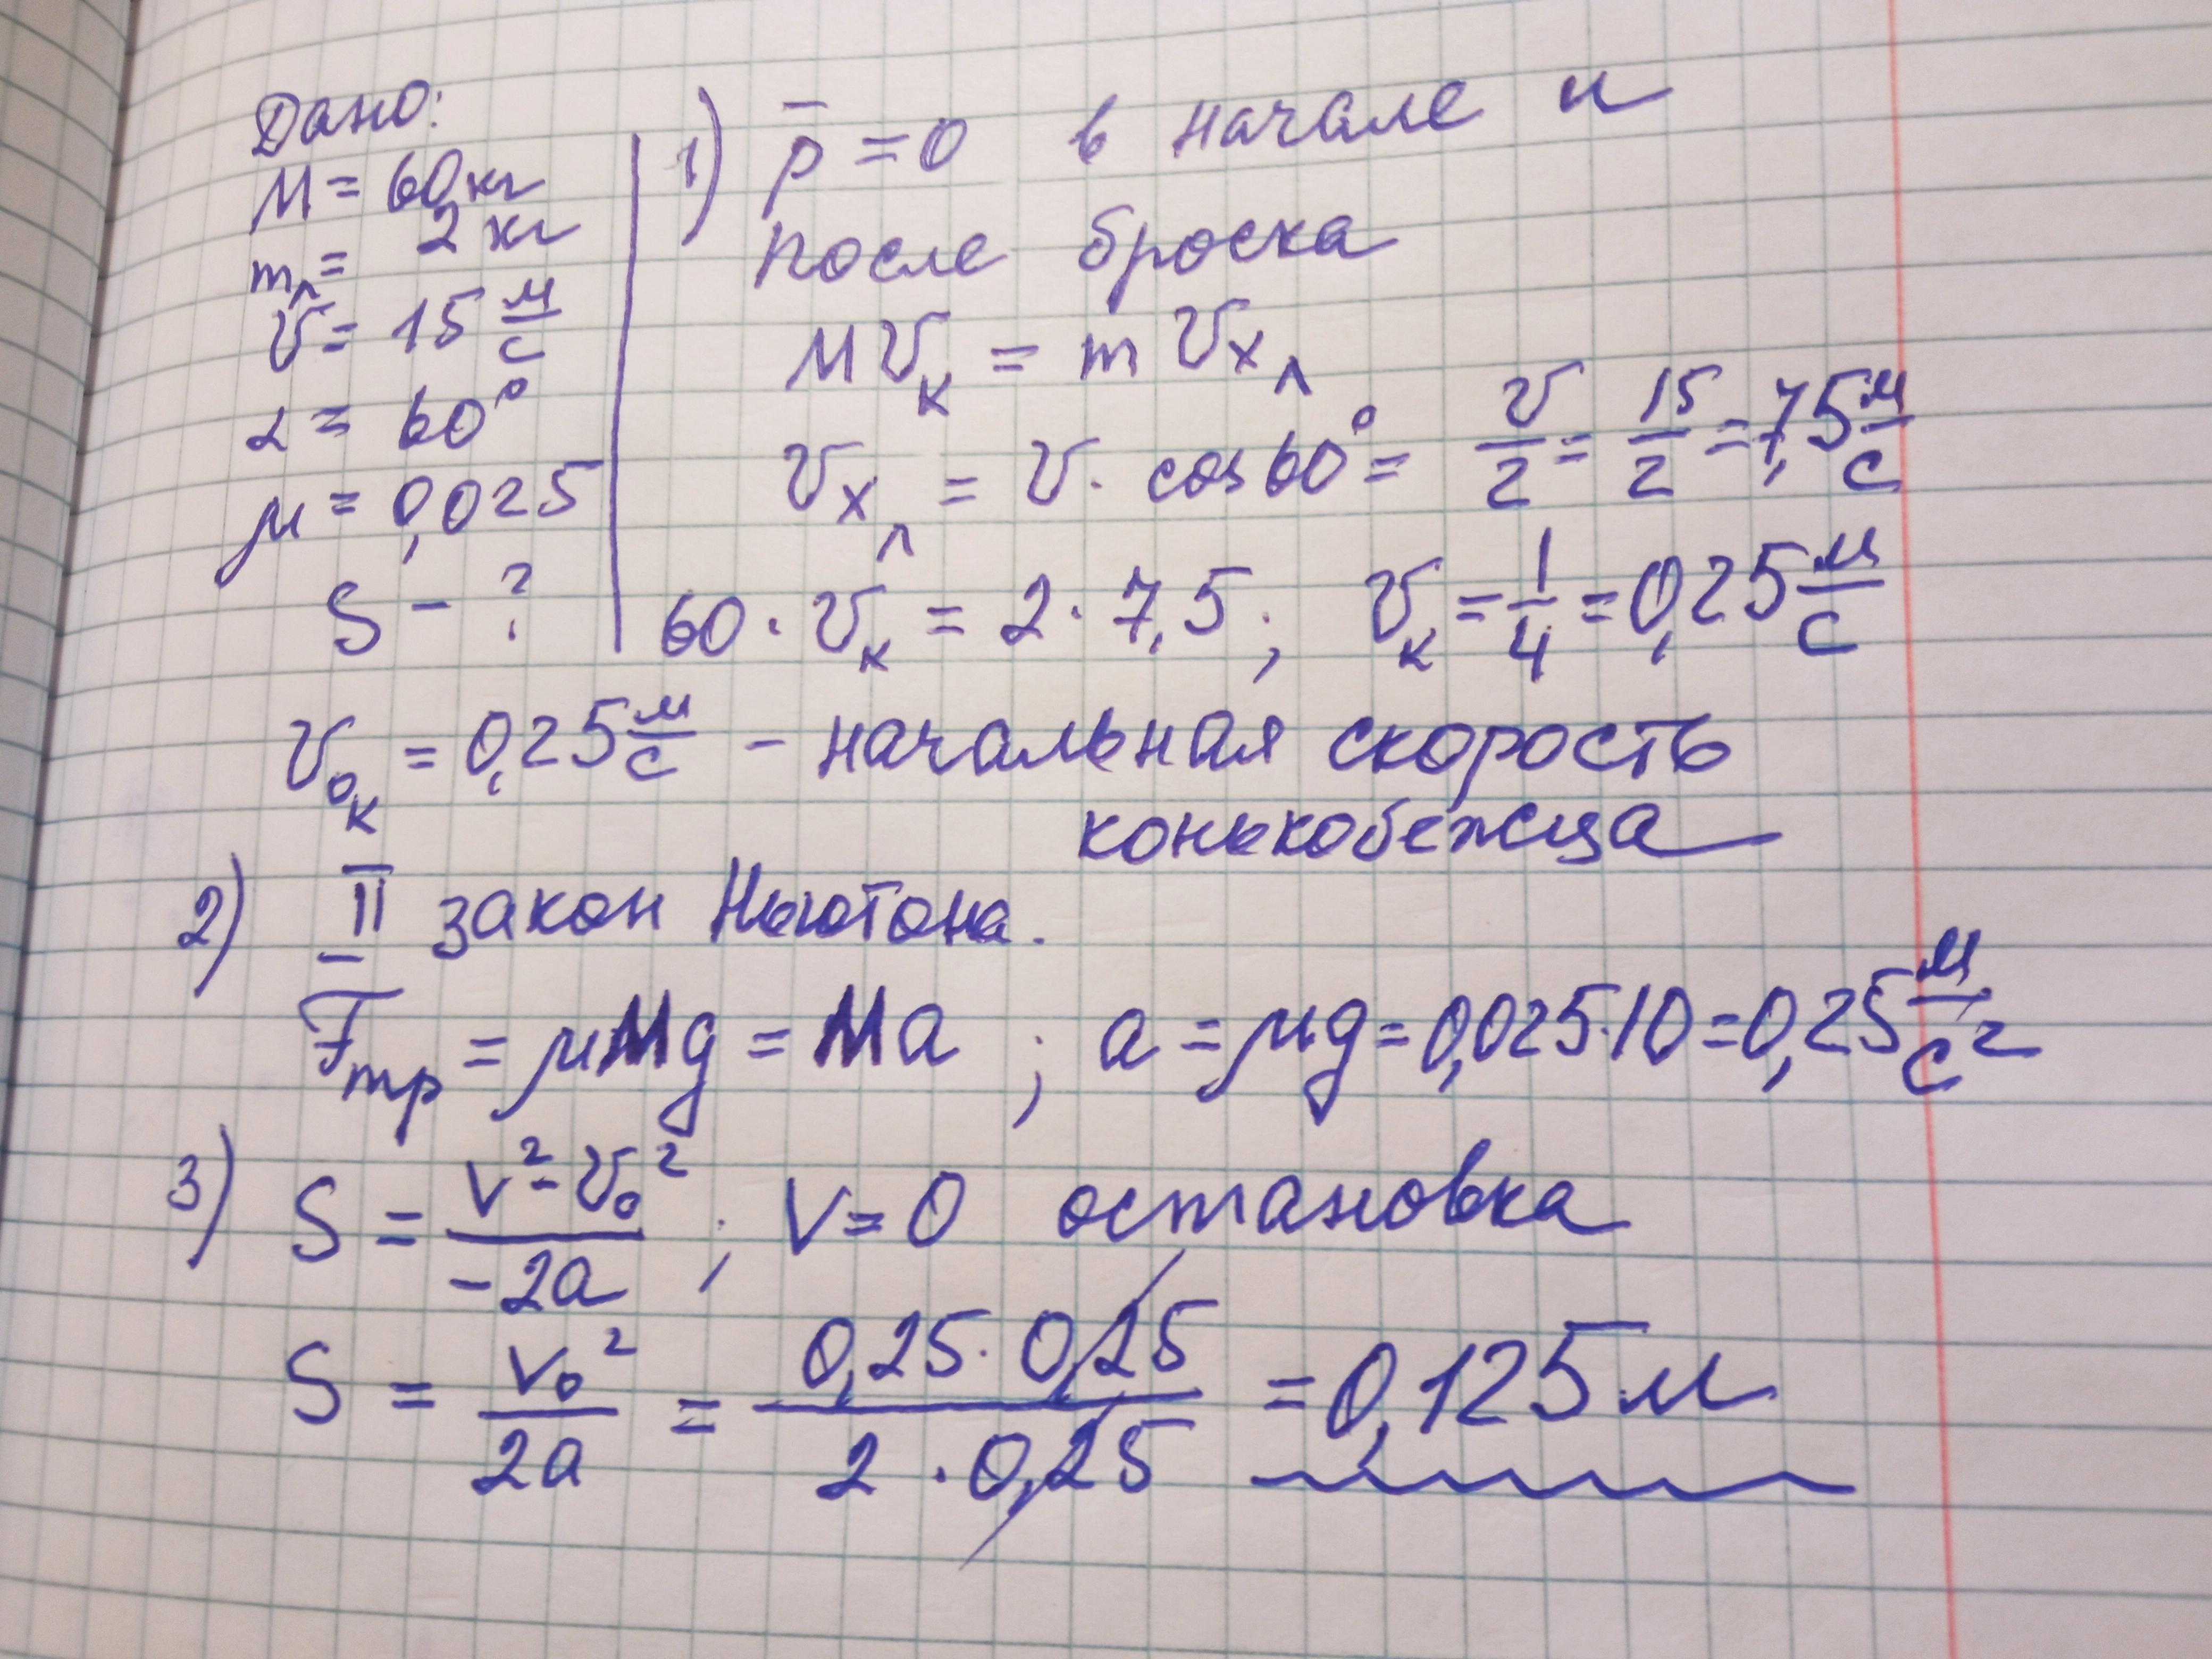 Дано:
M = 60 кг
mл = 2 кг
υ = 15 м/с
α = 60°
μ = 0,025
S - ?
1) p̄ = 0 в начале и
после броска
Mυк = mυxл
υxл = υ · cos60° = υ/2 = 15/2 = 7,5 м/с
60 · υк = 2 · 7,5 ; υк = 1/4 = 0,25 м/с
υ0к = 0,25 м/с - начальная скорость
конькобежца
2) II закон Ньютона.
Fтр = μMg = Ma ; a = μg = 0,025·10 = 0,25 м/с²
3) S = (v² - υ0²)/(-2a) ; v = 0 остановка
S = v0²/2a = (0,25 · 0,25)/(2 · 0,25) = 0,125 м